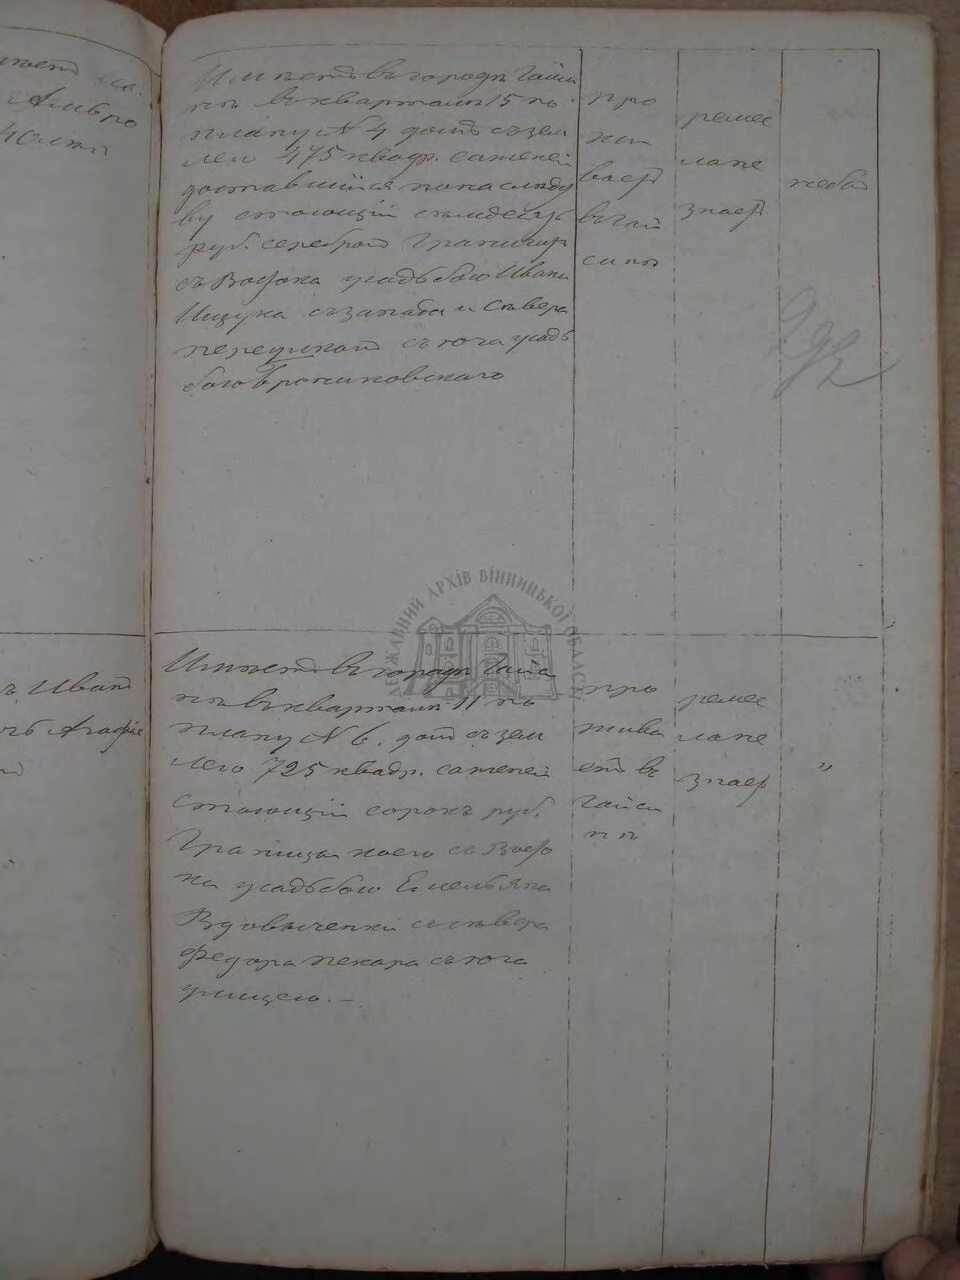 Имѣетъ въ городѣ Гайси
нѣ въ кварталѣ 15 по
плану № 4 домъ съ зем
лею 475 квадр. саженей
доставшійся по наслѣдс
ву стоющій семдесятъ
руб. серебромъ Граничитъ
съ Востока усадьбою Ивана
съ запада и сѣвера
переулкомъ съ юга усадь
бою Брониковскаго
про
жи
ваетъ
въ Гай
синѣ
ремес
ла не
знаетъ
небы
Имѣетъ въ городѣ Гайси
нѣ въ кварталѣ 11 по
плану № 6. домъ съ зем
лею 725 квадр. саженей
стоющій сорокъ руб.
Граница коего съ Восто
ка усадьбою Емельяна
Вдовыченки съ сѣвера
Федора пекара съ юга
улицею. —
про
жива
етъ въ
Гайси
нѣ
ремес
ла не
знаетъ
"
Иванъ
Агафіе
ДЕРЖАВНИЙ АРХІВ ВІННИЦЬКОЇ ОБЛАСТІ